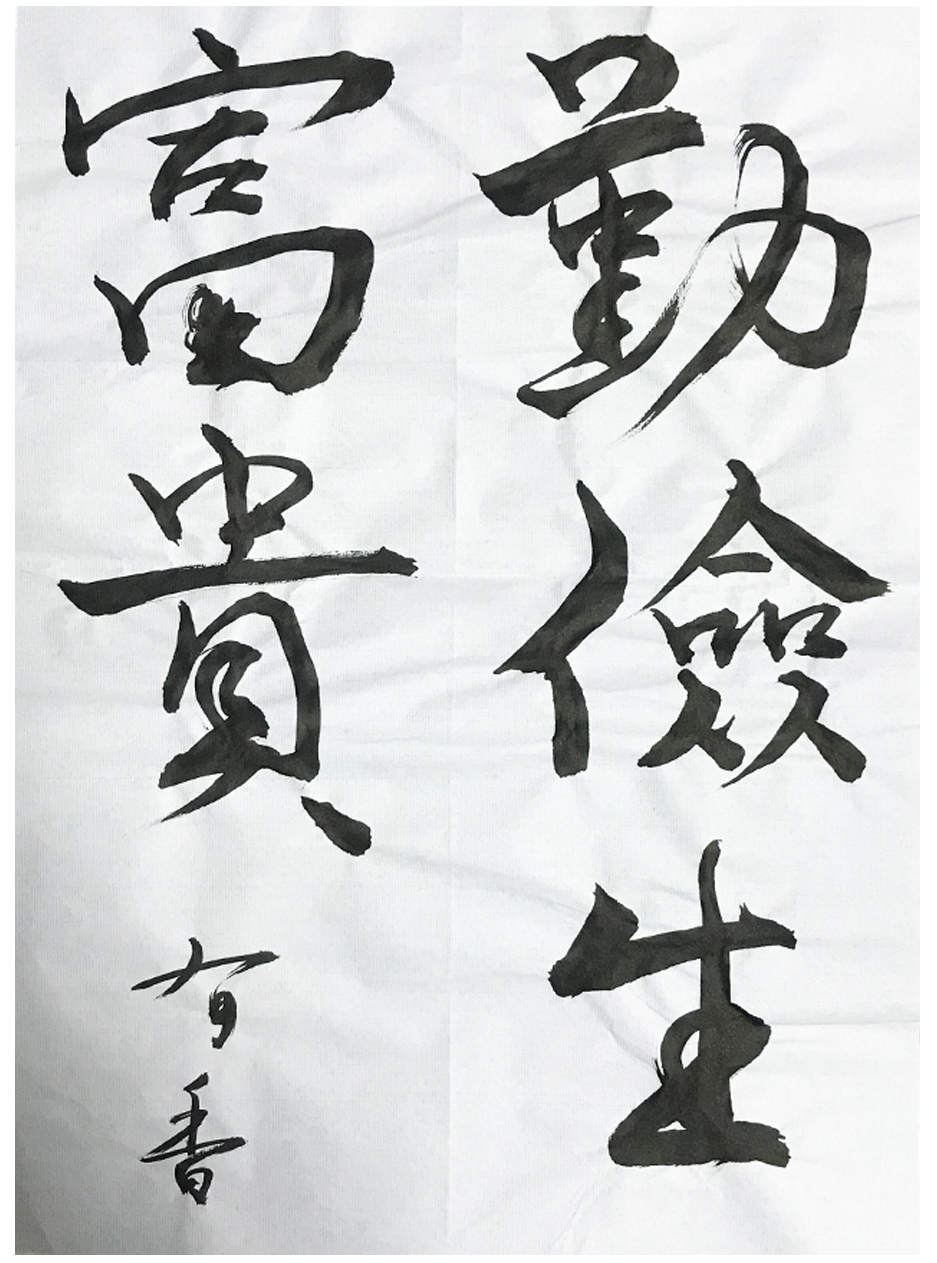 勤儉生
富貴
有香